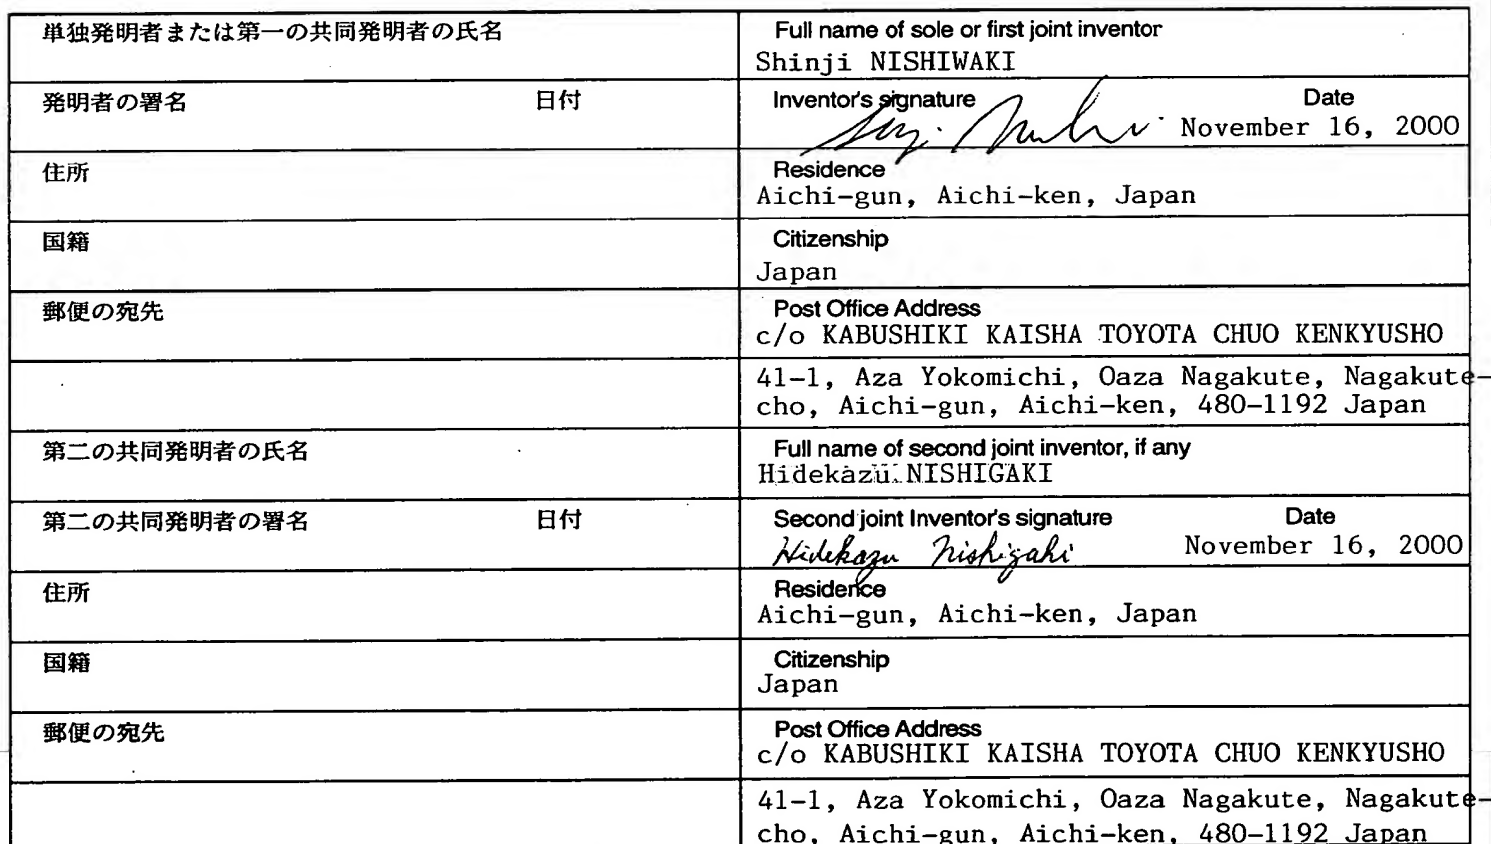 単独発明者または第一の共同発明者の氏名
Full name of sole or first joint inventor
Shinji NISHIWAKI
発明者の署名 日付
Inventor's signature Date
November 16, 2000
住所
Residence
Aichi-gun, Aichi-ken, Japan
国籍
Citizenship
Japan
郵便の宛先
Post Office Address
c/o KABUSHIKI KAISHA TOYOTA CHUO KENKYUSHO
41-1, Aza Yokomichi, Oaza Nagakute, Nagakute-
cho, Aichi-gun, Aichi-ken, 480-1192 Japan
第二の共同発明者の氏名
Full name of second joint inventor, if any
Hidekazu NISHIGAKI
第二の共同発明者の署名 日付
Second joint Inventor's signature Date
Hidekazu Nishigaki November 16, 2000
住所
Residence
Aichi-gun, Aichi-ken, Japan
国籍
Citizenship
Japan
郵便の宛先
Post Office Address
c/o KABUSHIKI KAISHA TOYOTA CHUO KENKYUSHO
41-1, Aza Yokomichi, Oaza Nagakute, Nagakute-
cho, Aichi-gun, Aichi-ken, 480-1192 Japan